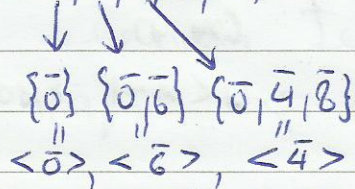 {0̅} {0̅,6̅} {0̅,4̅,8̅}
= = =
<0̅>, <6̅>, <4̅>